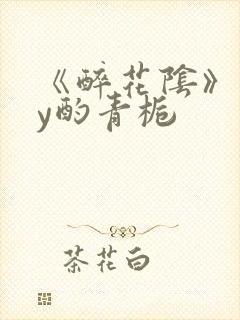 《醉花陰》
y酌青栀
茶花白